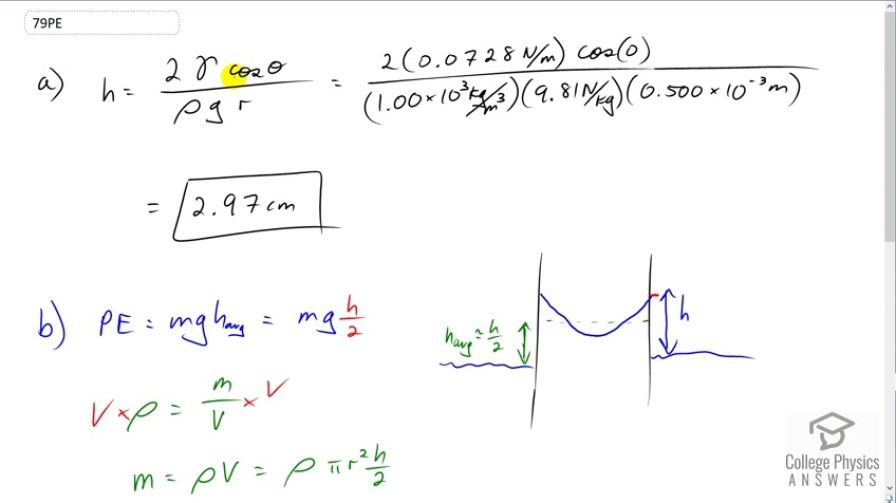 79PE
a) h = 2 γ cos θ / ρ g r = 2(0.0728 N/m) cos(0) / (1.00 × 10³ kg/m³)(9.81 N/kg)(0.500 × 10⁻³ m)
= 2.97 cm
b) PE = mg h_avg = mg h/2
h_avg ≈ h/2
h
V × ρ = m/V × V
m = ρV = ρ π r² h/2
College Physics
ANSWERS